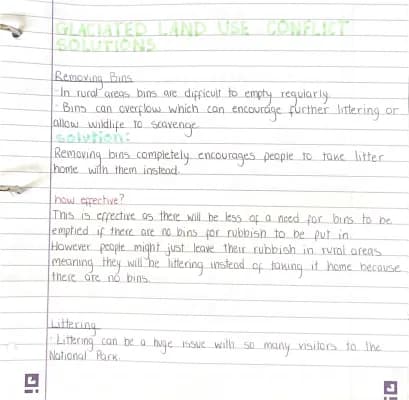 GLACIATED LAND USE CONFLICT
SOLUTIONS
Removing Bins
- In rural areas bins are difficult to empty regularly.
- Bins can overflow which can encourage further littering or
allow wildlife to scavenge
solution:
Removing bins completely encourages people to take litter
home with them instead.
how effective?
This is effective as there will be less of a need for bins to be
emptied if there are no bins for rubbish to be put in.
However people might just leave their rubbish in rural areas
meaning they will be littering instead of taking it home because
there are no bins.
Littering
- Littering can be a huge issue with so many visitors to the
National Park.